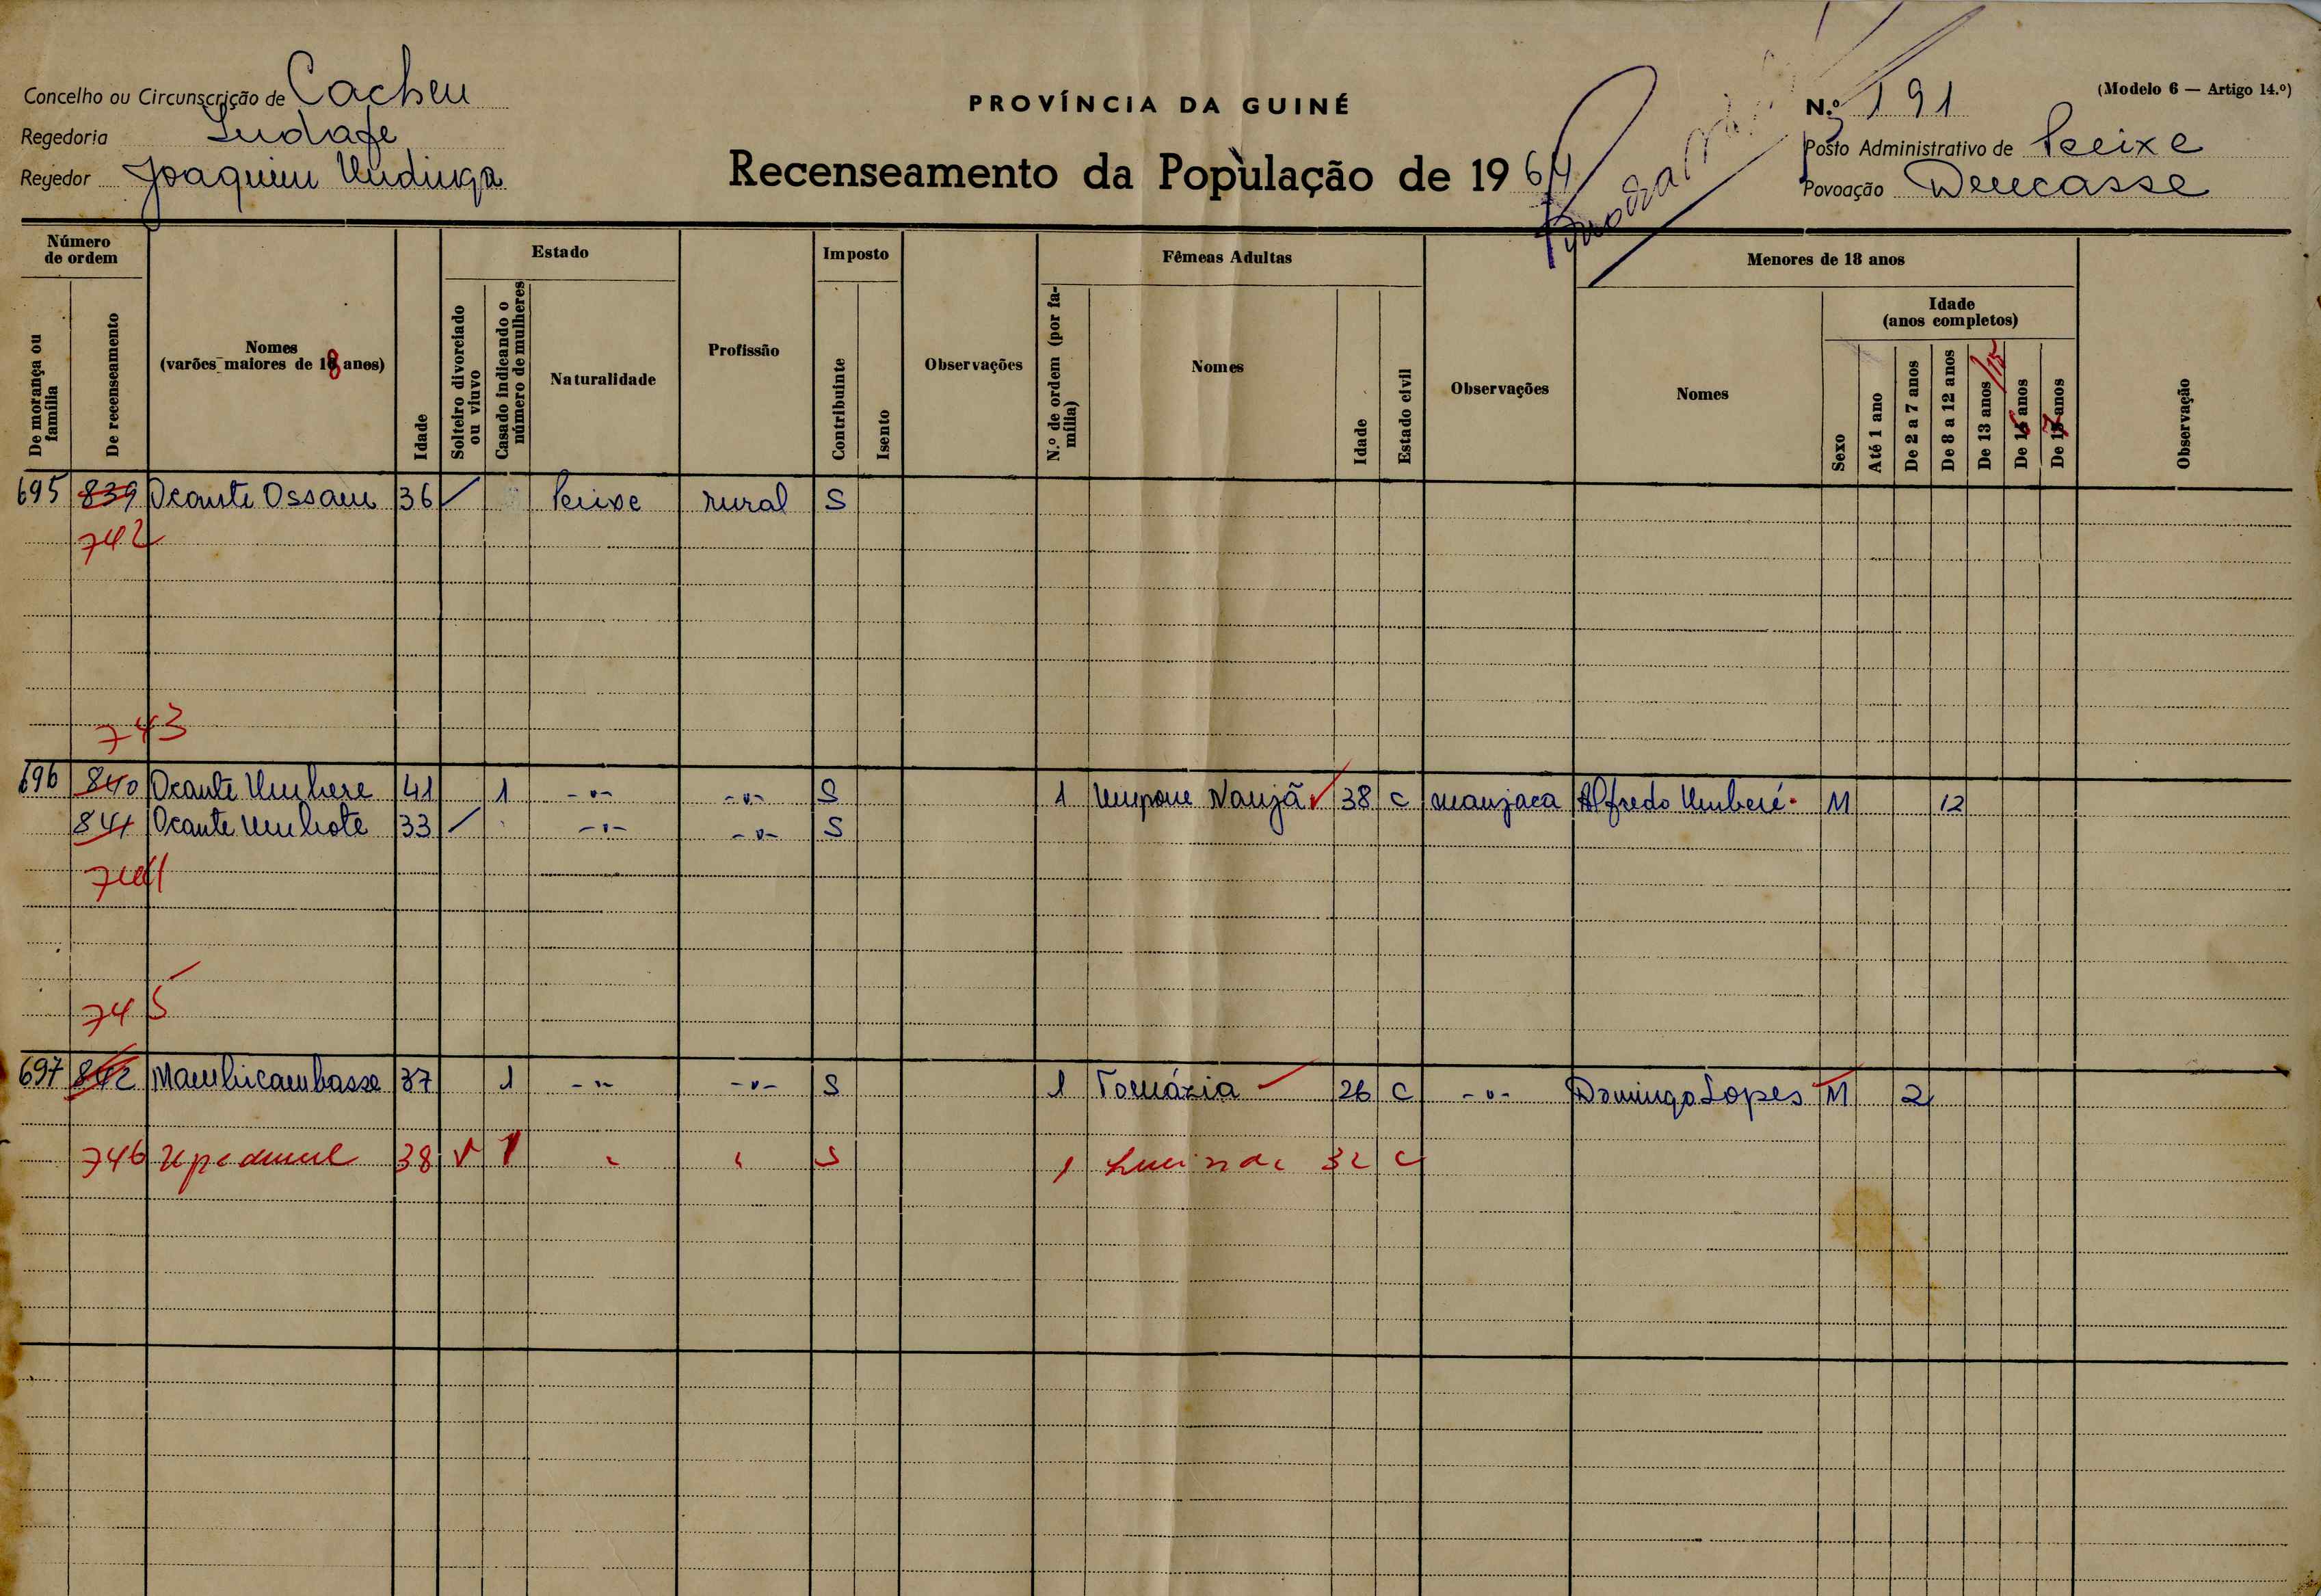 Concelho ou Circunscrição de Cacheu
Regedoria
Regedor Joaquim
PROVÍNCIA DA GUINÉ
Recenseamento da População de 1964
(Modelo 6 — Artigo 14.º)
N.º 191
Posto Administrativo de
Povoação
Número de ordem
De morança ou família
De recenseamento
Nomes
(varões maiores de 18 anos)
Idade
Estado
Solteiro divorciado ou viuvo
Casado indicando o número de mulheres
Naturalidade
Profissão
Imposto
Contribuinte
Isento
Observações
Fêmeas Adultas
N.º de ordem (por família)
Nomes
Idade
Estado civil
Observações
Menores de 18 anos
Nomes
Idade
(anos completos)
Sexo
Até 1 ano
De 2 a 7 anos
De 8 a 12 anos
De 13 anos
De anos
De anos
Observação
695 839 Ocante Ossam 36 rural S
742
743
696 840 Ocante 41 1 -"- -"- S 1 38 C manjaca Alfredo M 12
841 Ocante 33 -"- -"- S
744
745
697 842 37 1 -"- -"- S 1 Tomázia 26 C -"- Domingo Lopes M 2
746 38 1 " " S 1 32 C